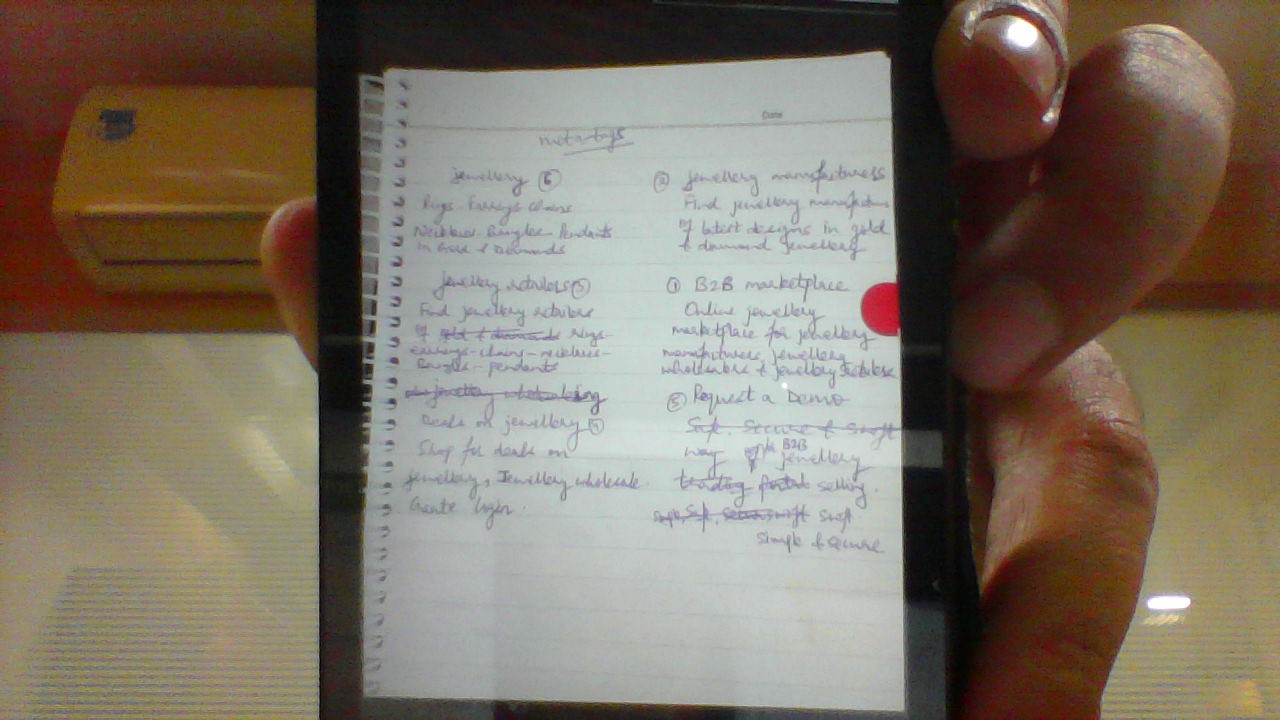 Date
metatags
jewellery (6)
Rings - Earrings - Chains
Necklaces - Bangles - Pendants
in Gold & Diamonds
jewellery retailers (3)
Find jewellery retailers
of gold & diamonds rings-
earrings - chains - necklaces -
Bangles - pendants
jewellery
Deals on jewellery (4)
Shop for deals on
jewellery, Jewellery wholesale.
Create login.
(2) jewellery manufacturers
Find jewellery manufacturers
of latest designs in gold
& diamond jewellery
(1) B2B marketplace
Online jewellery
marketplace for jewellery
manufacturers, jewellery
wholesalers & jewellery retailers
(5) Request a Demo
Safe, Secure & Swift
way of B2B jewellery
trading portal selling.
Safe, Secure swift Swift
simple & secure